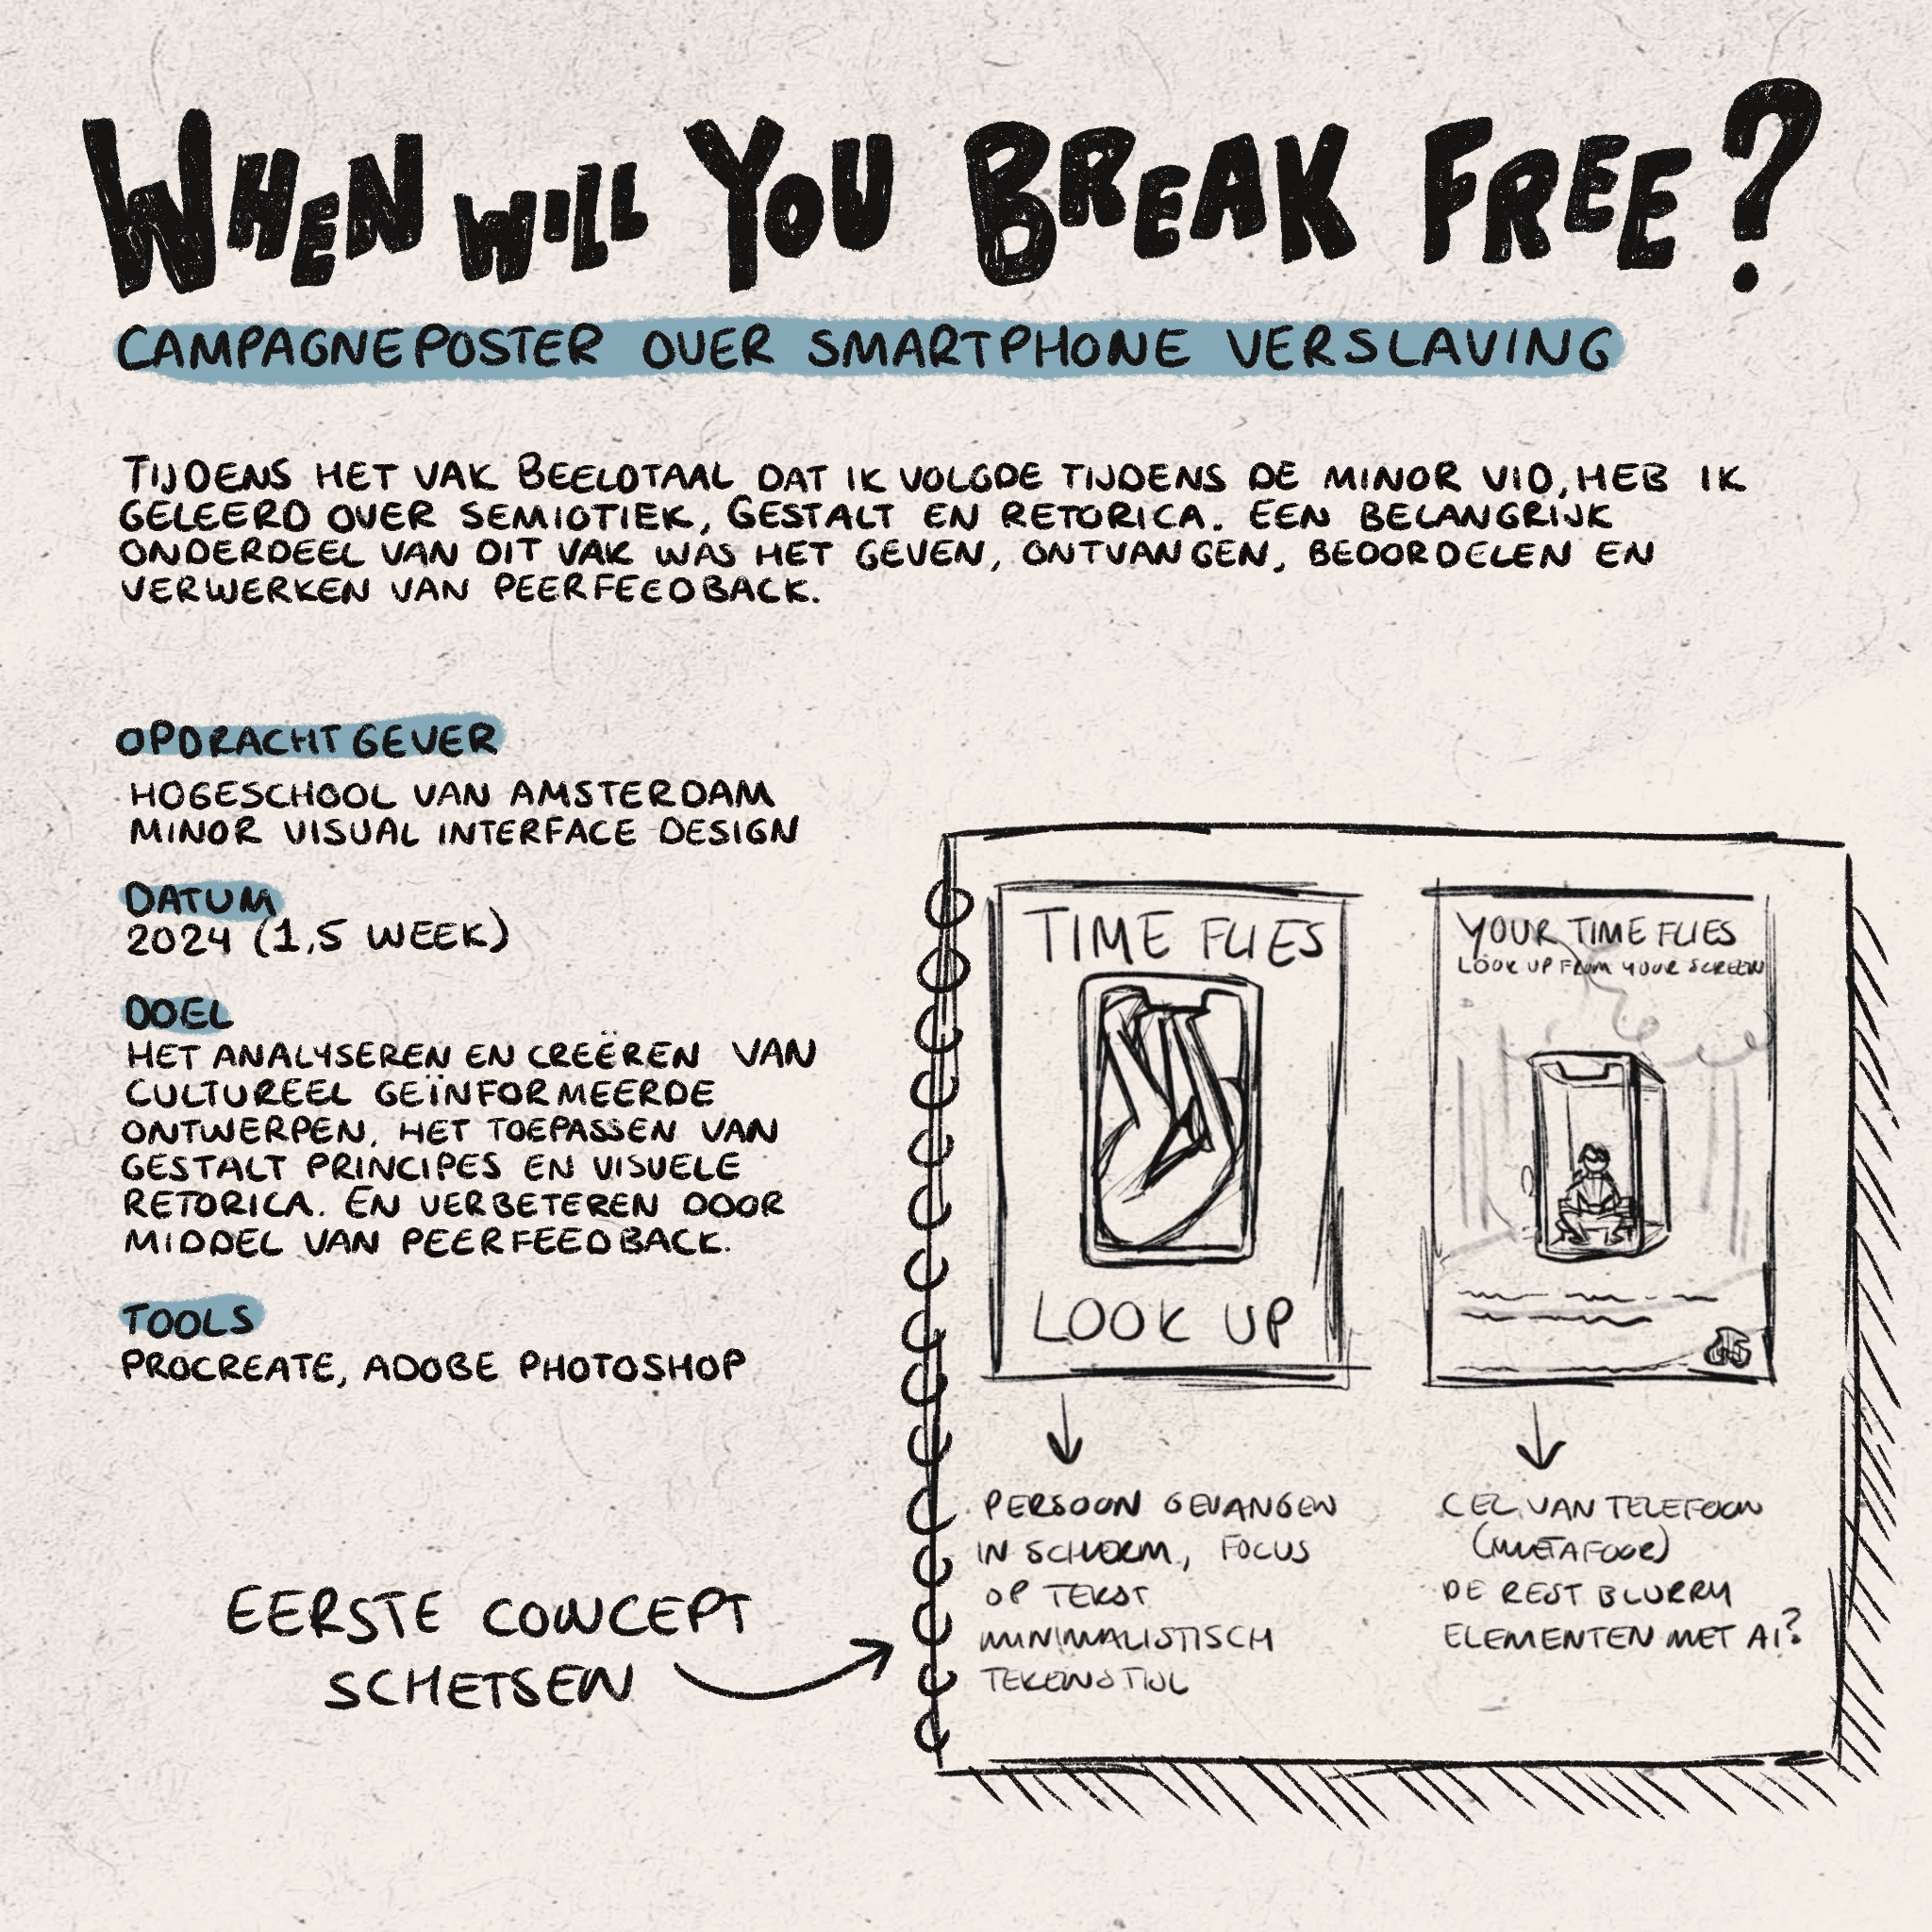 WHEN WILL YOU BREAK FREE?
CAMPAGNEPOSTER OVER SMARTPHONE VERSLAVING
TIJDENS HET VAK BEELDTAAL DAT IK VOLGDE TIJDENS DE MINOR VID, HEB IK
GELEERD OVER SEMIOTIEK, GESTALT EN RETORICA. EEN BELANGRIJK
ONDERDEEL VAN DIT VAK WAS HET GEVEN, ONTVANGEN, BEOORDELEN EN
VERWERKEN VAN PEERFEEDBACK.
OPDRACHTGEVER
HOGESCHOOL VAN AMSTERDAM
MINOR VISUAL INTERFACE DESIGN
DATUM
2024 (1,5 WEEK)
DOEL
HET ANALYSEREN EN CREËREN VAN
CULTUREEL GEÏNFORMEERDE
ONTWERPEN, HET TOEPASSEN VAN
GESTALT PRINCIPES EN VISUELE
RETORICA. EN VERBETEREN DOOR
MIDDEL VAN PEERFEEDBACK.
TOOLS
PROCREATE, ADOBE PHOTOSHOP
EERSTE CONCEPT
SCHETSEN
TIME FLIES
LOOK UP
PERSOON GEVANGEN
IN SCHERM, FOCUS
OP TEKST
MINIMALISTISCH
TEKENSTIJL
YOUR TIME FLIES
LOOK UP FROM YOUR SCREEN
CEL VAN TELEFOON
(METAFOOR)
DE REST BLURRY
ELEMENTEN MET AI?